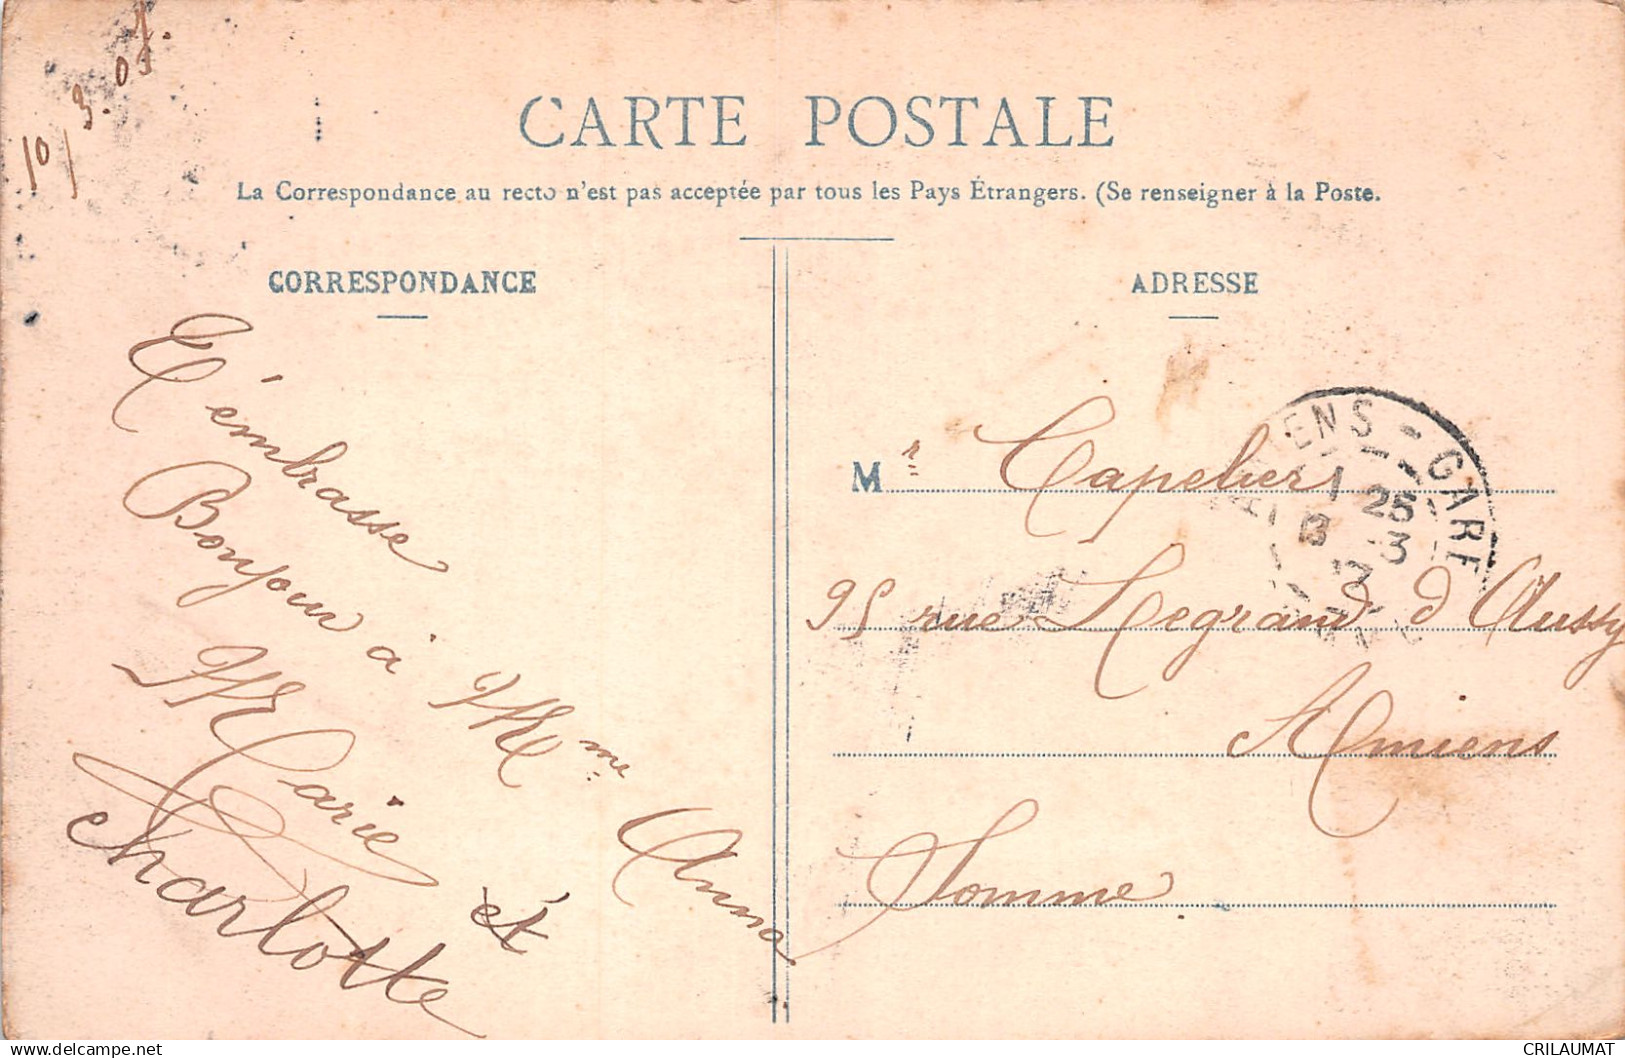 10/3.05.
CARTE POSTALE
La Correspondance au recto n'est pas acceptée par tous les Pays Étrangers. (Se renseigner à la Poste.
CORRESPONDANCE
ADRESSE
T'embrasse
Bonjour à Mme Anna
Marie et
Charlotte
Mr. Capelier
95 rue Legrand d Aussy
Amiens
Somme.
ENS - GARE
1 25
13 -3
CRILAUMAT